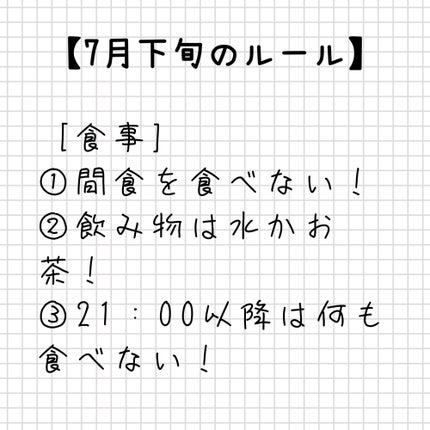 【7月下旬のルール】
[食事]
①間食を食べない！
②飲み物は水かお
茶！
③21：00以降は何も
食べない！